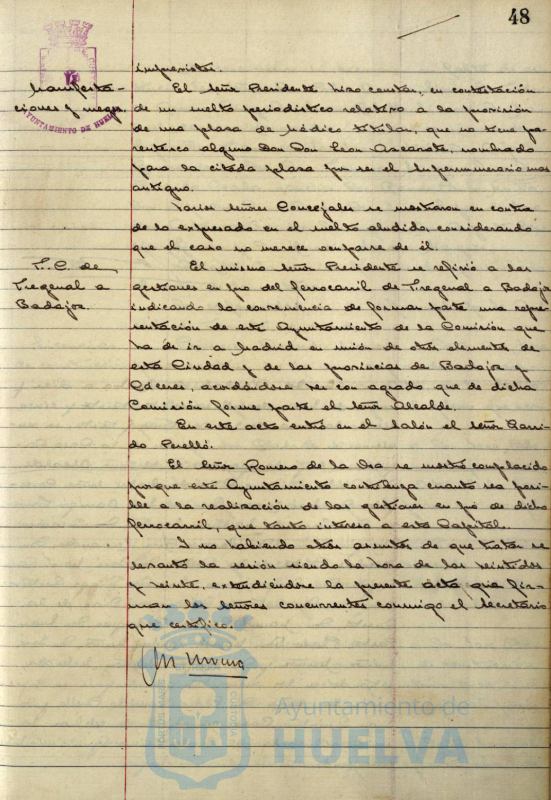 48
imprevistos.
Manifesta-
ciones y ruegos.
AYUNTAMIENTO DE HUELVA
El Señor Presidente hizo constar, en contestación
de un suelto periodístico relativo a la provisión
de una plaza de Médico titular, que no tiene pa-
rentesco alguno con Don Leon Ascarate, nombrado
para la citada plaza por ser el Supernumerario mas
antiguo.
Varios Señores Concejales se mostraron en contra
de lo expresado en el suelto aludido, considerando
que el caso no merece ocuparse de él.
F. C. de
Fregenal a
Badajoz.
El mismo Señor Presidente se refirió a las
gestiones en pro del ferrocarril de Fregenal a Badajoz
indicando la conveniencia de formar parte una repre-
sentación de este Ayuntamiento de la Comisión que
ha de ir a Madrid en unión de otros elementos de
esta Ciudad y de las provincias de Badajoz y
Cáceres, acordándose ver con agrado que de dicha
Comisión forme parte el señor Alcalde.
En este acto entró en el Salón el Señor Garri-
do Perelló.
El Señor Romero de la Osa se mostró complacido
porque este Ayuntamiento contribuya cuanto sea posi-
ble a la realización de las gestiones en pró de dicho
ferrocarril, que tanto interesa a esta Capital.
Y no habiendo otros asuntos de que tratar se
levantó la sesión siendo la hora de las veintidos
y veinte, extendiéndose la presente acta que fir-
man los Señores concurrentes conmigo el Secretario
que certifico.
M Moreno
Ayuntamiento de
HUELVA